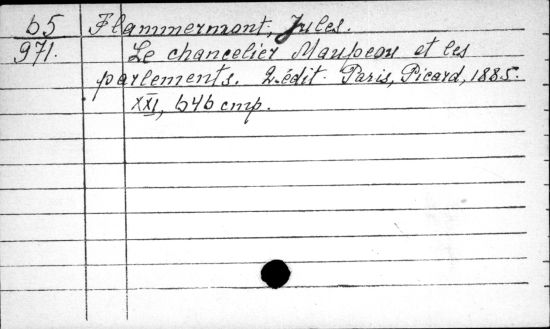 65 Flammermont, Jules.
971. Le chancelier Maupeou et les
parlements. 2. édit. Paris, Picard, 1885.
XXI, 646 стр.